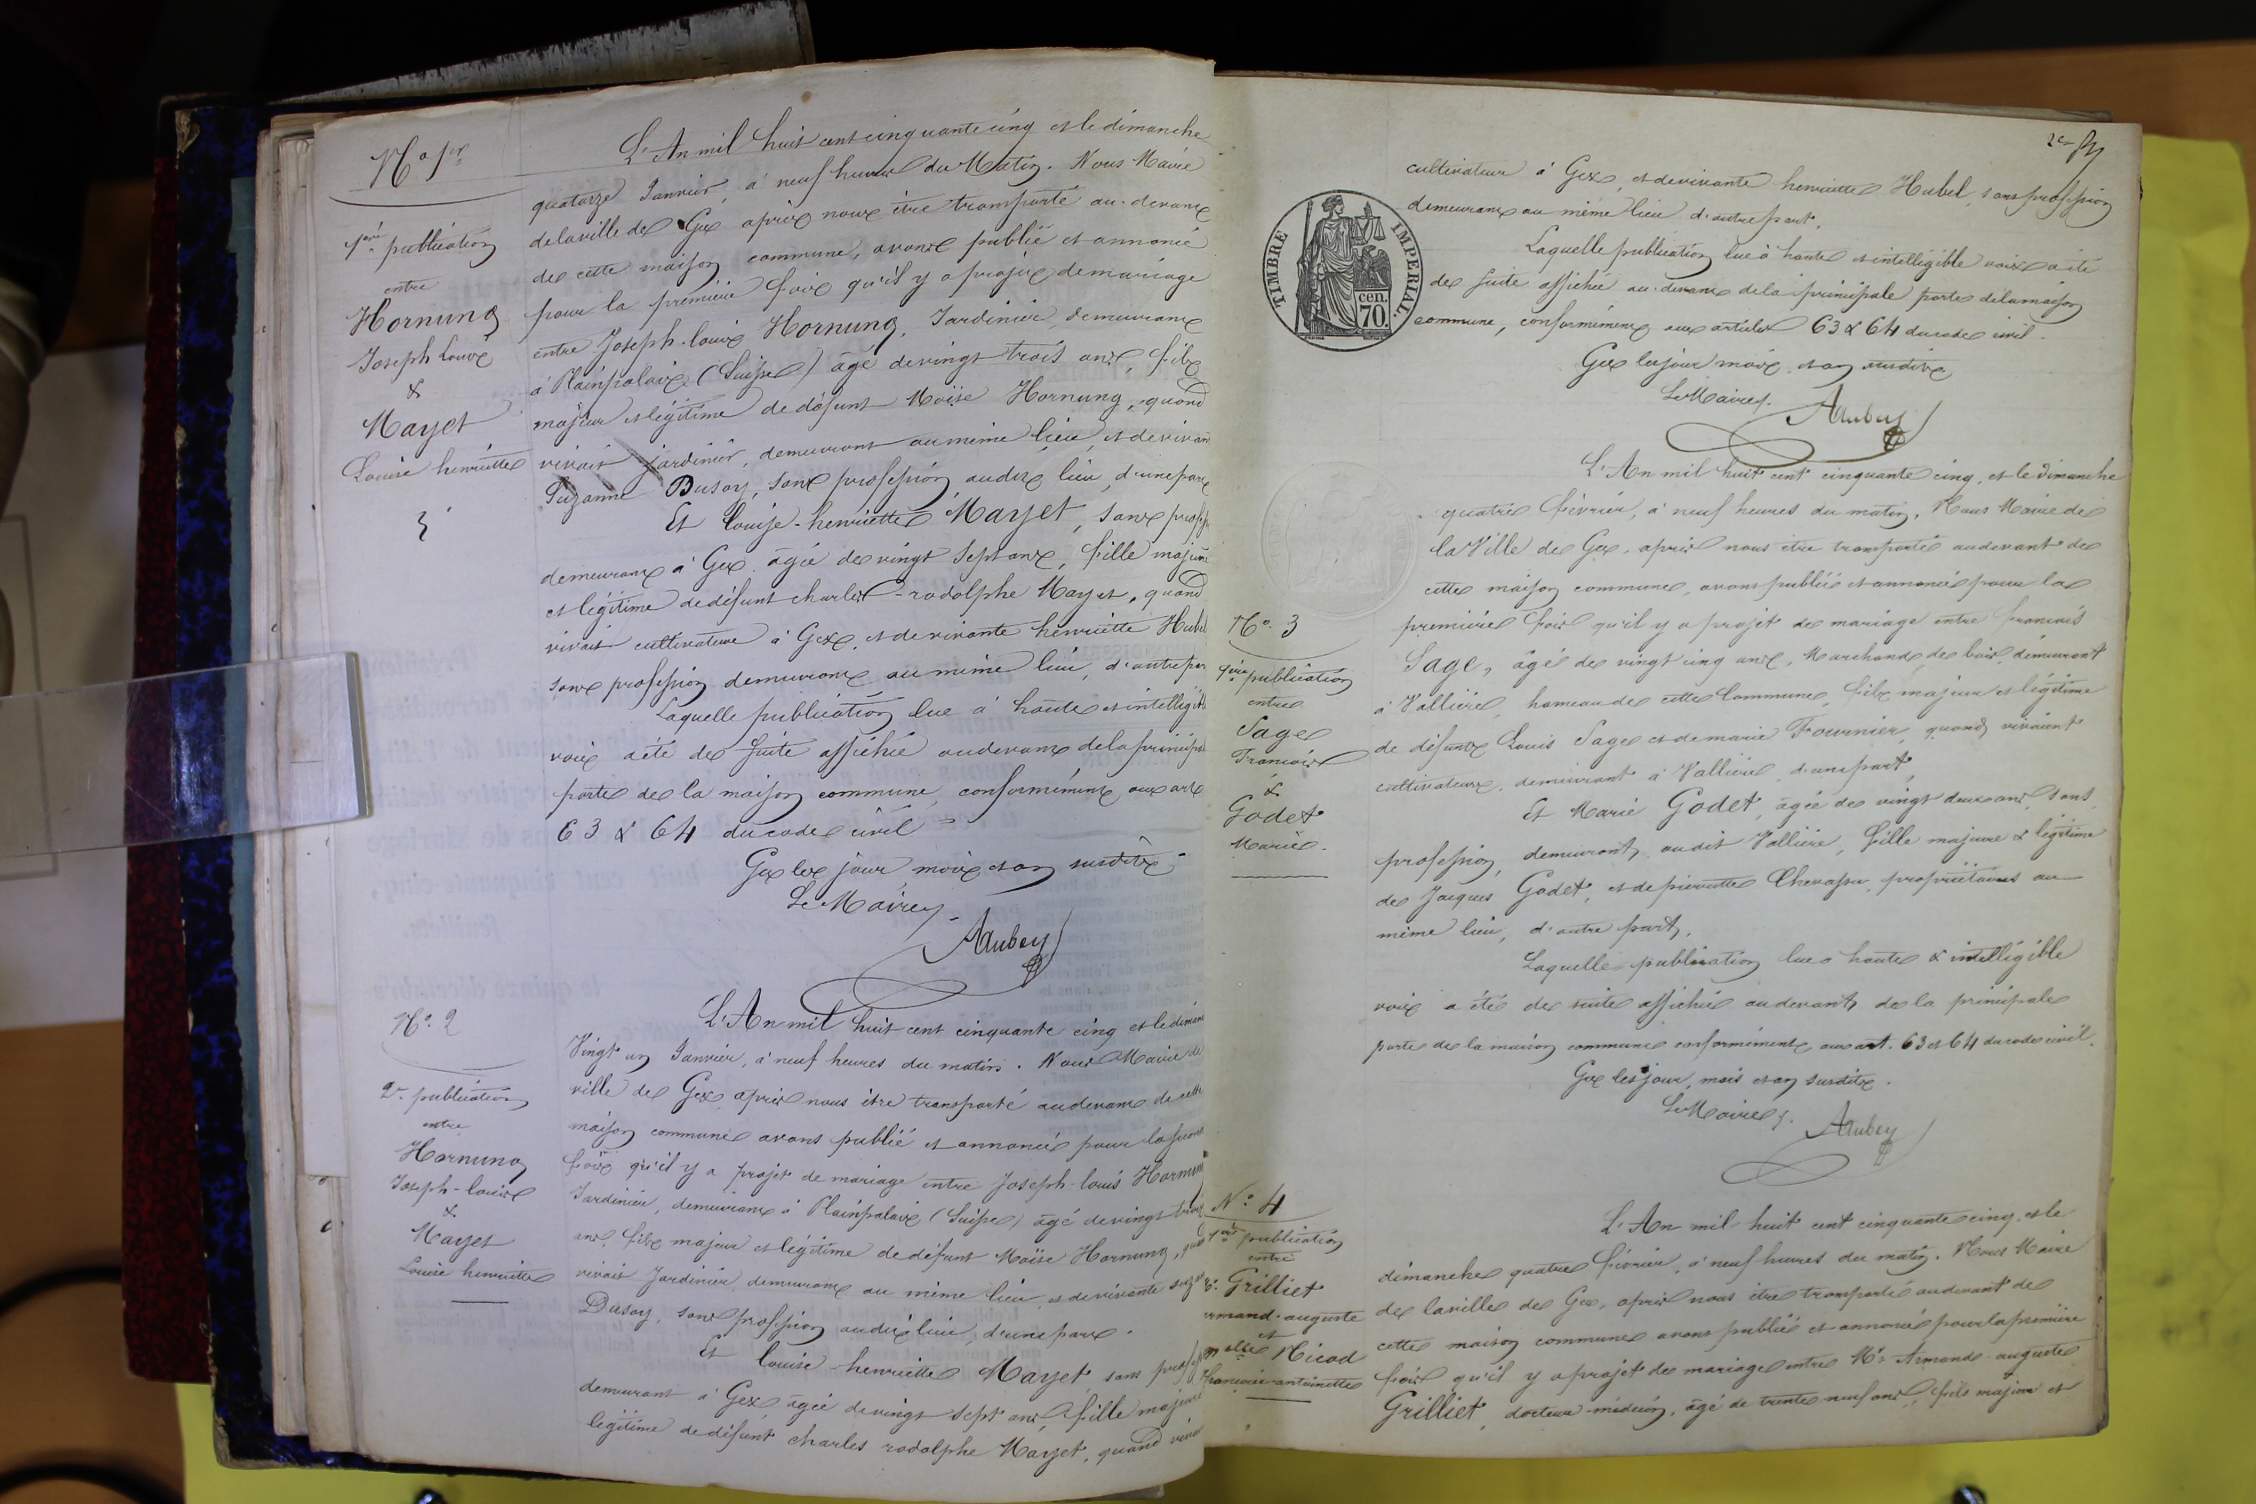 No 1er
1ère publication
entre
Hornung
Joseph Louis
&
Mayet
Louise henriette
L'An mil huit cent cinquante cinq et le dimanche
quatorze Janvier, à neuf heures du Matin. Nous Maire
de la ville de Gex après nous être transporté au-devant
de cette maison commune, avons publié et annoncé
pour la première fois qu'il y a projet de mariage
entre Joseph-louis Hornung, Jardinier, demeurant
à Plainpalais (Suisse) âgé de vingt trois ans, fils
majeur et légitime de défunt Moïse Hornung, quand
vivait jardinier, demeurant au même lieu, et de vivante
Suzanne Dusoy, sans profession, audit lieu, d'une part
Et louise-henriette Mayet, sans profess
demeurant à Gex âgée de vingt sept ans, fille majeure
et légitime de défunt charles-rodolphe Mayet, quand
vivait cultivateur à Gex, et de vivante henriette Hubel
sans profession demeurant au même lieu, d'autre part
Laquelle publication lue à haute et intelligible
voix a été de suite affichée au devant de la principale
porte de la maison commune, conformément aux art
63 & 64 du code civil =
Gex les jour mois et an susdits.
Le Maire,
Aubey
No. 2
2e. publication
entre
Hornung
Joseph-louis
&
Mayet
Louise henriette
L'An mil huit cent cinquante cinq et le diman
Vingt un Janvier, à neuf heures du matin. Nous Maire de
ville de Gex, après nous être transporté au devant de cette
maison commune avons publié et annoncé pour la secon
fois qu'il y a projet de mariage entre Joseph-louis Hornung
Jardinier, demeurant à Plainpalais (Suisse) âgé de vingt trois
ans, fils majeur et légitime de défunt Moïse Hornung, quand
vivait Jardinier, demeurant au même lieu, et de vivante suzan
Dusoy, sans profession audit lieu, d'une part.
Et louise-henriette Mayet sans profess
demeurant à Gex, âgée de vingt sept ans, fille majeure
légitime de défunt charles rodolphe Mayet, quand vivai
2e
TIMBRE IMPERIAL.
cen. 70.
cultivateur à Gex, et de vivante henriette Hubel, sans profession
demeurant au même lieu d'autre part.
Laquelle publication lue à haute et intelligible voix a été
de suite affichée au-devant de la principale porte de la maison
commune, conformément aux articles 63 & 64 du code civil.
Gex les jour mois et an susdits
Le Maire,
Aubey
No. 3
1ère publication
entre
Sage
François
&
Godet
Marie.
L'An mil huit cent cinquante cinq, et le dimanche
quatre février, à neuf heures du matin, Nous Maire de
la Ville de Gex, après nous être transporté au devant de
cette maison commune, avons publié et annoncé pour la
première fois qu'il y a projet de mariage entre francois
Sage, âgé de vingt cinq ans, Marchand de bois, demeurant
à Vallière, hameau de cette Commune, fils majeur et légitime
de défunts Louis Sage et de marie Fournier, quand vivaient
cultivateurs, demeurant à Vallière, d'une part,
Et Marie Godet, âgée de vingt deux ans, sans
profession, demeurant, audit Vallière, fille majeure & légitime
de Jacques Godet, et de pierrette Chevassu, propriétaires au
même lieu, d'autre part.
Laquelle publication lue à haute & intelligible
voix a été de suite affichée au devant de la principale
porte de la maison commune conformément aux art. 63 et 64 du code civil.
Gex les jour, mois et an susdits.
Le Maire,
Aubey
No. 4
1ère publication
entre
Grilliet
rmand-auguste
et
Melle Nicod
françoise-antoinette
L'An mil huit cent cinquante cinq, et le
dimanche quatre février, à neuf heures du matin. Nous Maire
de la ville de Gex, après nous être transporté au devant de
cette maison commune avons publié et annoncé pour la première
fois qu'il y a projet de mariage entre Mr. Armand-auguste
Grilliet, docteur-médecin, âgé de trente-neuf ans, fils majeur et